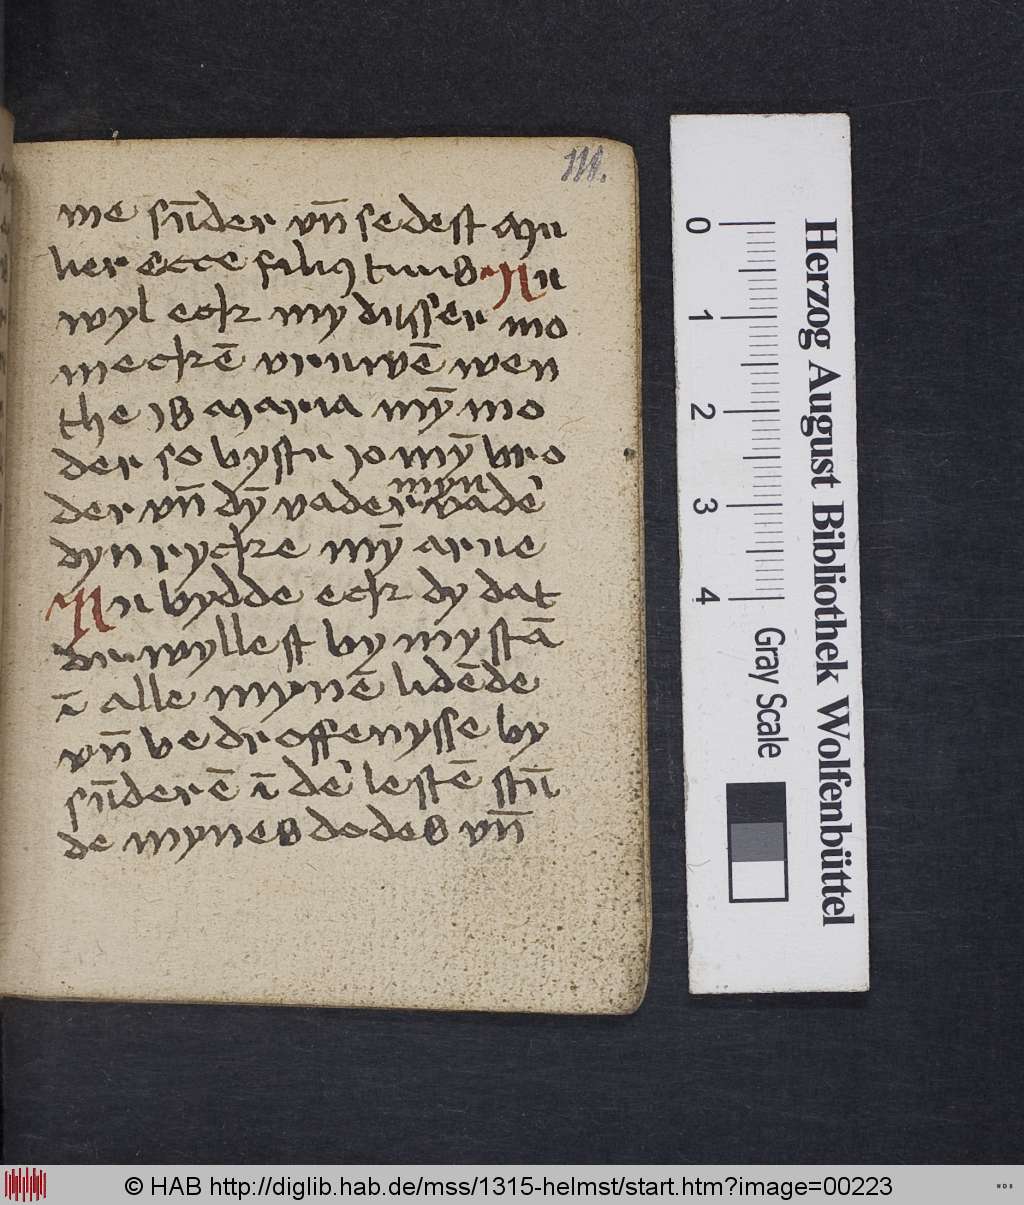 111.
me sūder vn̄ sedest Mu
lier ecce filiꝰ tuus Nu
wyl eck my dusser mo
meckē vruwē wen
the is Maria mȳ mo
der so bystu jo mȳ bro
der vn̄ dȳ vader myn vade'
dyn rycke mȳ arue
Nu bydde eck dy dat
du wyllest by my stā
ī alle mynē lidēde
vn̄ bedroffenysse by
sūderē ī de' lestē stū
de mynes dodes vn̄
Herzog August Bibliothek Wolfenbüttel
0 1 2 3 4
Gray Scale
© HAB http://diglib.hab.de/mss/1315-helmst/start.htm?image=00223